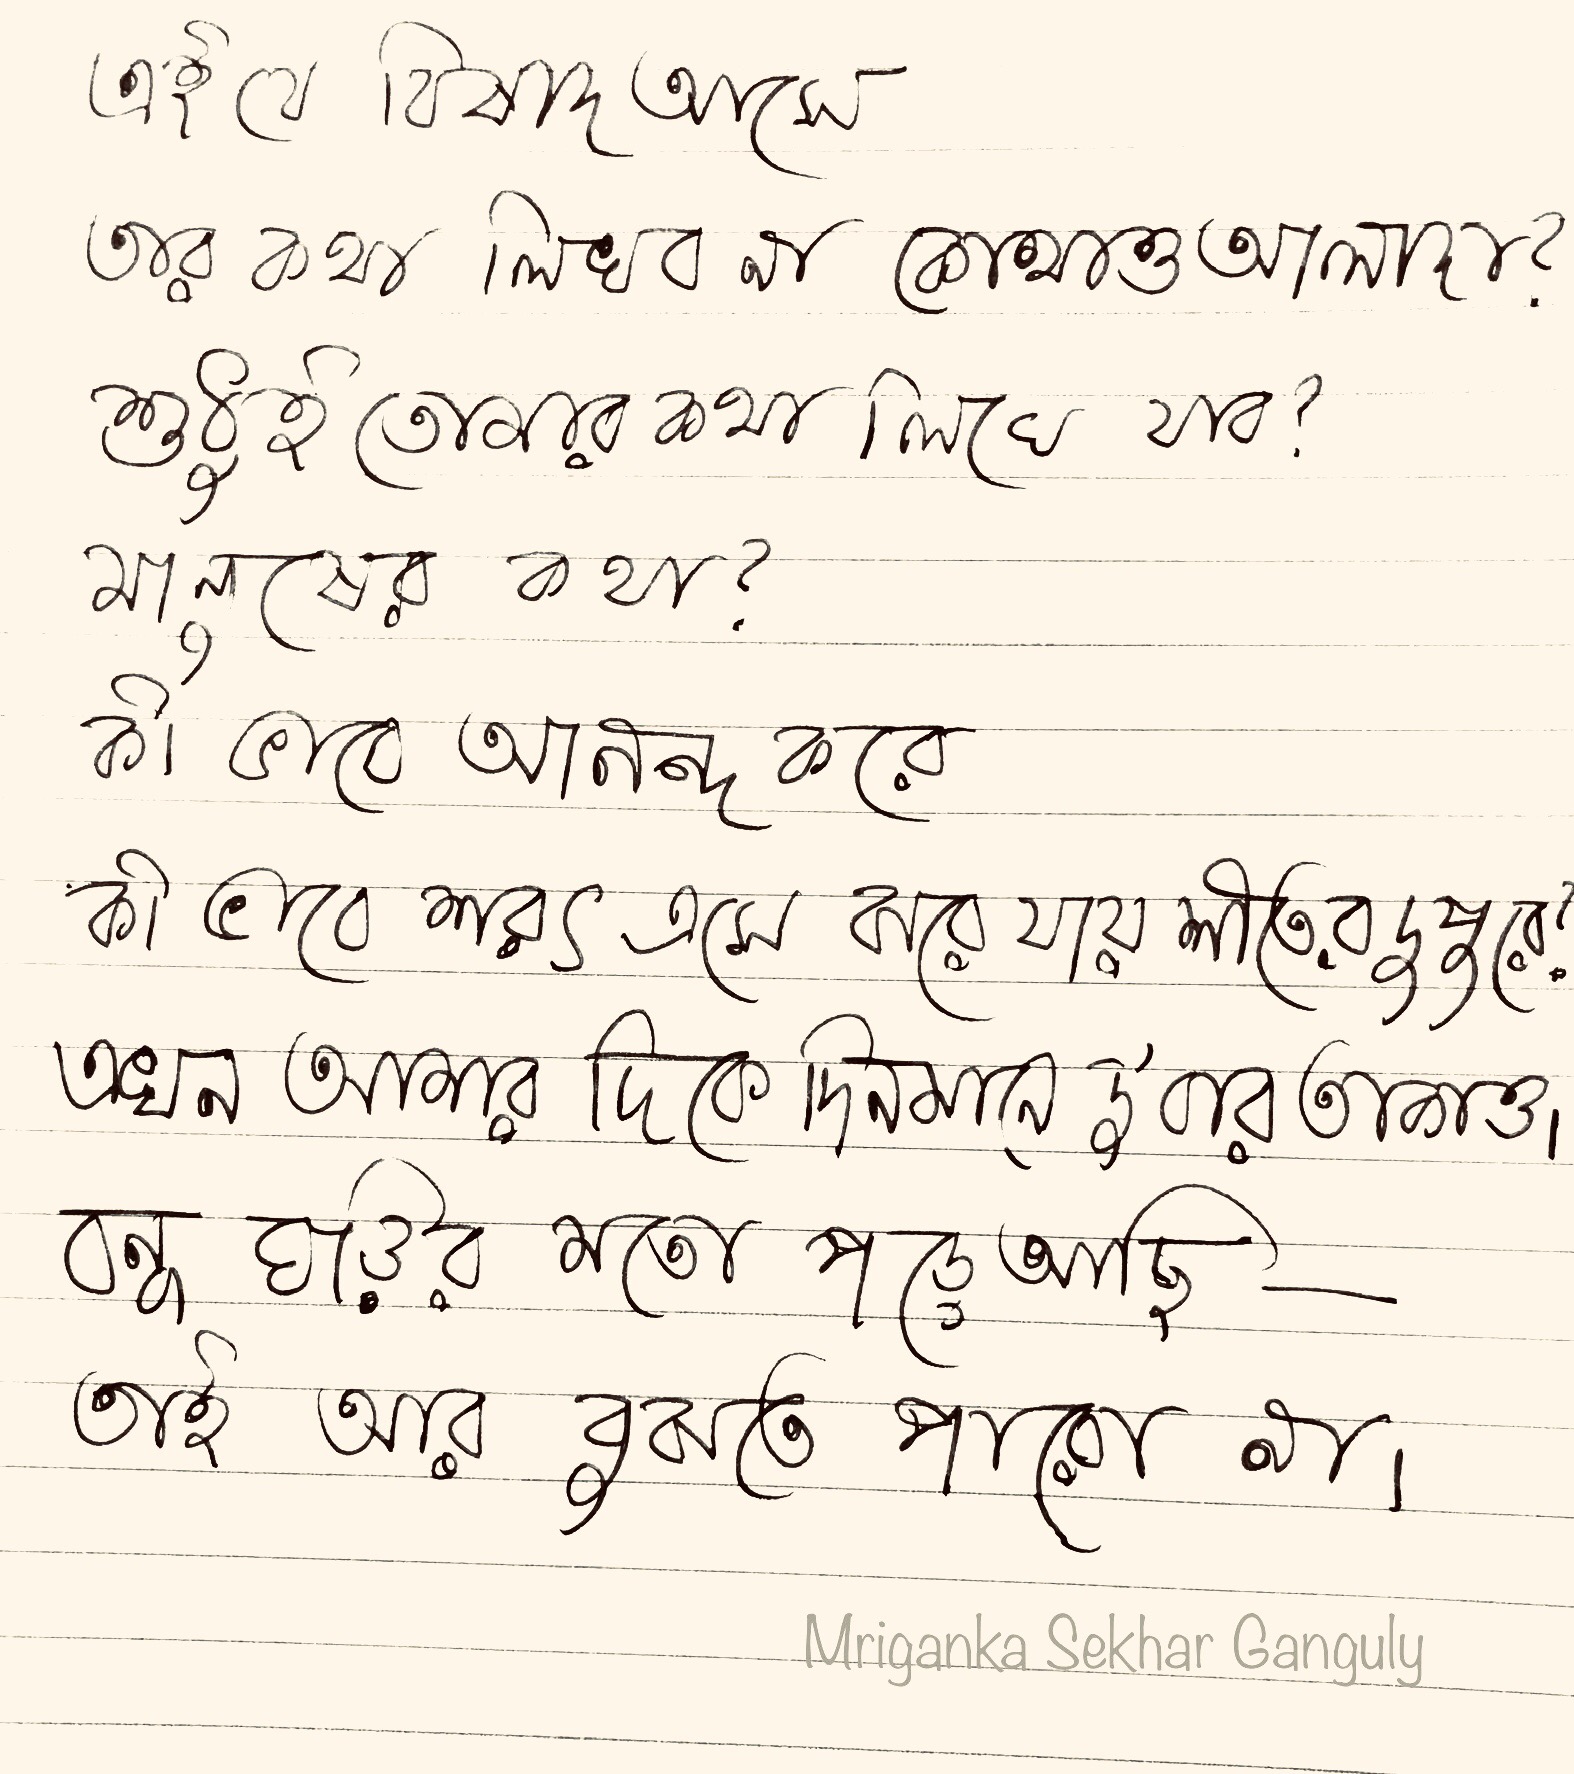 এই যে বিষাদ আসে
তার কথা লিখব না কোথাও আলাদা?
শুধুই তোমার কথা লিখে যাব?
মানুষের কথা?
কী ভাবে আনন্দ করে
কী ভাবে শরৎ এসে ঝরে যায় শীতের দুপুরে?
এখন আমার দিকে দিনমানে দুবার তাকাও।
বন্ধ ঘড়ির মতো পড়ে আছি —
তাই আর বুঝতে পারো না।
Mriganka Sekhar Ganguly